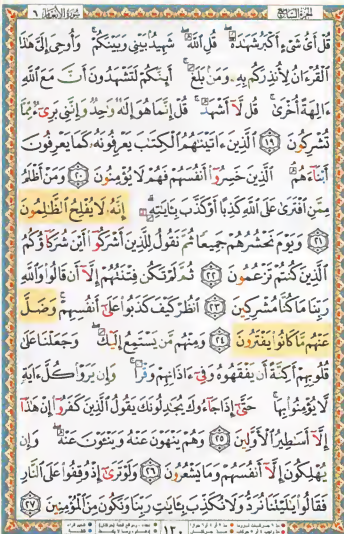 الجزء السابع سورة الأنعام ٦
قُلْ أَىُّ شَىْءٍ أَكْبَرُ شَهَـٰدَةً ۖ قُلِ ٱللَّهُ ۖ شَهِيدٌۢ بَيْنِى وَبَيْنَكُمْ ۚ وَأُوحِىَ إِلَىَّ هَـٰذَا
ٱلْقُرْءَانُ لِأُنذِرَكُم بِهِۦ وَمَنۢ بَلَغَ ۚ أَئِنَّكُمْ لَتَشْهَدُونَ أَنَّ مَعَ ٱللَّهِ
ءَالِهَةً أُخْرَىٰ ۚ قُل لَّآ أَشْهَدُ ۚ قُلْ إِنَّمَا هُوَ إِلَـٰهٌ وَٰحِدٌ وَإِنَّنِى بَرِىٓءٌ مِّمَّا
تُشْرِكُونَ ١٩ ٱلَّذِينَ ءَاتَيْنَـٰهُمُ ٱلْكِتَـٰبَ يَعْرِفُونَهُۥ كَمَا يَعْرِفُونَ
أَبْنَآءَهُمُ ۘ ٱلَّذِينَ خَسِرُوٓا۟ أَنفُسَهُمْ فَهُمْ لَا يُؤْمِنُونَ ٢٠ وَمَنْ أَظْلَمُ
مِمَّنِ ٱفْتَرَىٰ عَلَى ٱللَّهِ كَذِبًا أَوْ كَذَّبَ بِـَٔايَـٰتِهِۦٓ ۗ إِنَّهُۥ لَا يُفْلِحُ ٱلظَّـٰلِمُونَ
٢١ وَيَوْمَ نَحْشُرُهُمْ جَمِيعًا ثُمَّ نَقُولُ لِلَّذِينَ أَشْرَكُوٓا۟ أَيْنَ شُرَكَآؤُكُمُ
ٱلَّذِينَ كُنتُمْ تَزْعُمُونَ ٢٢ ثُمَّ لَمْ تَكُن فِتْنَتُهُمْ إِلَّآ أَن قَالُوا۟ وَٱللَّهِ
رَبِّنَا مَا كُنَّا مُشْرِكِينَ ٢٣ ٱنظُرْ كَيْفَ كَذَبُوا۟ عَلَىٰٓ أَنفُسِهِمْ ۚ وَضَلَّ
عَنْهُم مَّا كَانُوا۟ يَفْتَرُونَ ٢٤ وَمِنْهُم مَّن يَسْتَمِعُ إِلَيْكَ ۖ وَجَعَلْنَا عَلَىٰ
قُلُوبِهِمْ أَكِنَّةً أَن يَفْقَهُوهُ وَفِىٓ ءَاذَانِهِمْ وَقْرًا ۚ وَإِن يَرَوْا۟ كُلَّ ءَايَةٍ
لَّا يُؤْمِنُوا۟ بِهَا ۚ حَتَّىٰٓ إِذَا جَآءُوكَ يُجَـٰدِلُونَكَ يَقُولُ ٱلَّذِينَ كَفَرُوٓا۟ إِنْ هَـٰذَآ
إِلَّآ أَسَـٰطِيرُ ٱلْأَوَّلِينَ ٢٥ وَهُمْ يَنْهَوْنَ عَنْهُ وَيَنْـَٔوْنَ عَنْهُ ۖ وَإِن
يُهْلِكُونَ إِلَّآ أَنفُسَهُمْ وَمَا يَشْعُرُونَ ٢٦ وَلَوْ تَرَىٰٓ إِذْ وُقِفُوا۟ عَلَى ٱلنَّارِ
فَقَالُوا۟ يَـٰلَيْتَنَا نُرَدُّ وَلَا نُكَذِّبَ بِـَٔايَـٰتِ رَبِّنَا وَنَكُونَ مِنَ ٱلْمُؤْمِنِينَ ٢٧
١٣٠